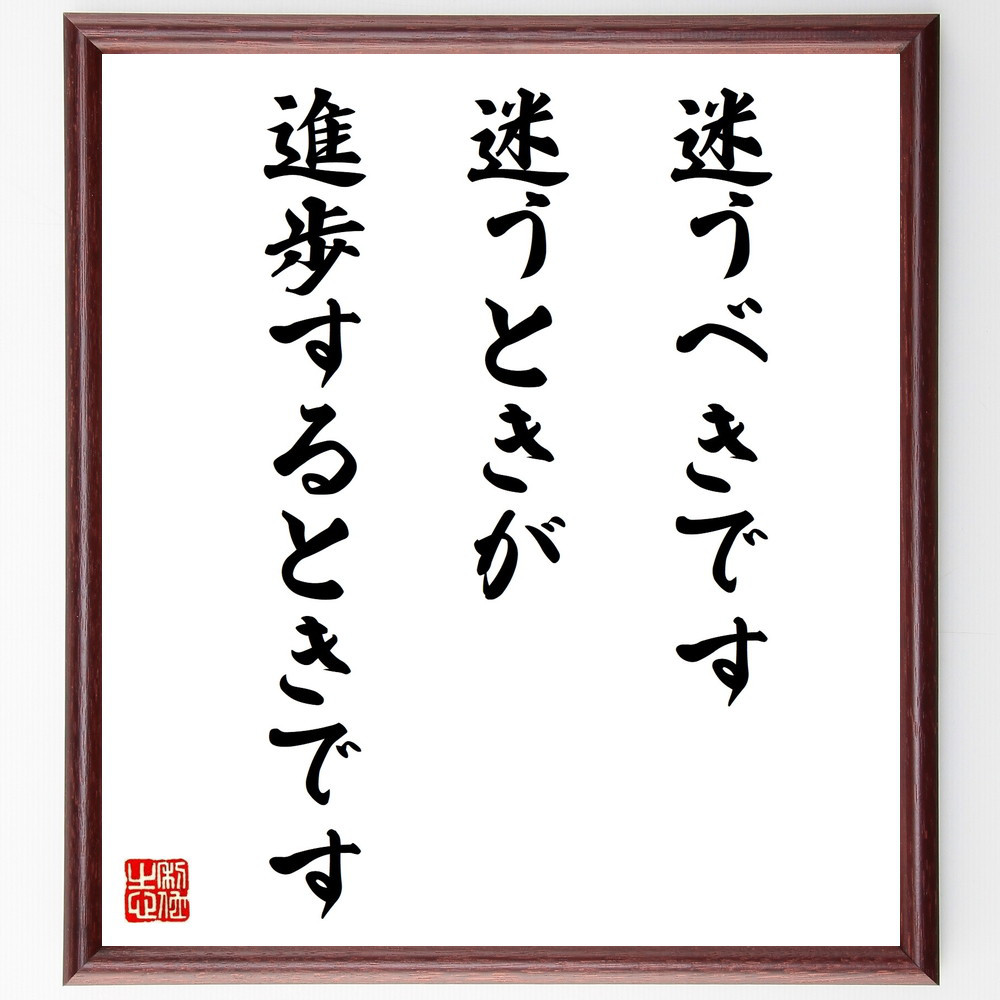 迷うべきです
迷うときが
進歩するときです